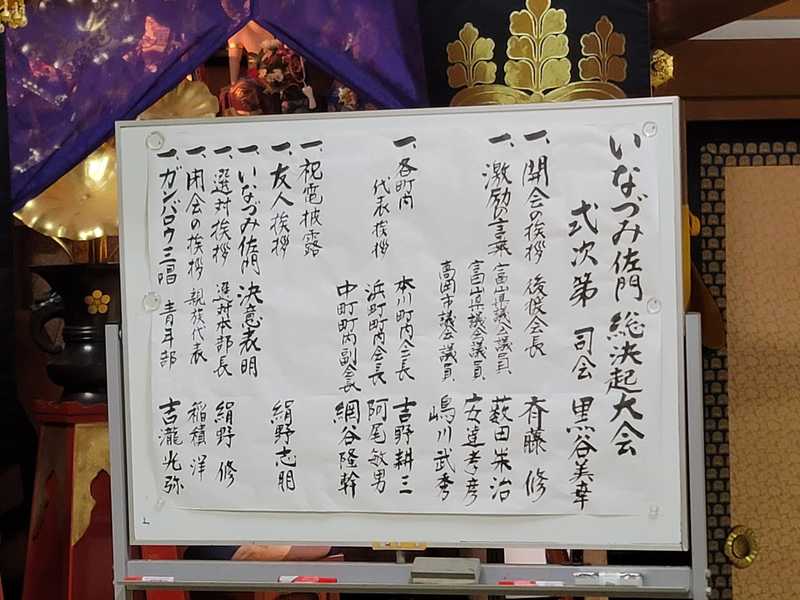 いなづみ佐門 総決起大会
式次第 司会 黒谷美幸
一、開会の挨拶 後援会長 斉藤 修
一、激励の言葉 富山県議会議員 薮田栄治
富山県議会議員 安達孝彦
高岡市議会議員 嶋川武秀
一、各町内代表挨拶 本川町内会長 吉野耕三
浜町町内会長 阿尾敏男
中町町内副会長 網谷隆幹
一、祝電披露
一、友人挨拶 絹野志朋
一、いなづみ佐門 決意表明
一、選対挨拶 選対本部長 絹野 修
一、閉会の挨拶 親族代表 稲積 洋
一、ガンバロウ三唱 青年部 吉瀧光弥